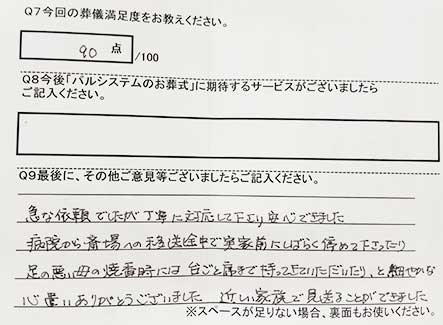 Q7今回の葬儀満足度をお教えください。
90 点 /100
Q8今後「パルシステムのお葬式」に期待するサービスがございましたら
ご記入ください。
Q9最後に、その他ご意見等ございましたらご記入ください。
急な依頼でしたが丁寧に対応して下さり安心できました
病院から斎場への移送途中で実家前にしばらく停めて下さったり
足の悪い母の焼香時には台ごと席まで持ってきていただいたり、と細やかな
心遣いありがとうございました 近い家族で見送ることができました
※スペースが足りない場合、裏面もお使いください。